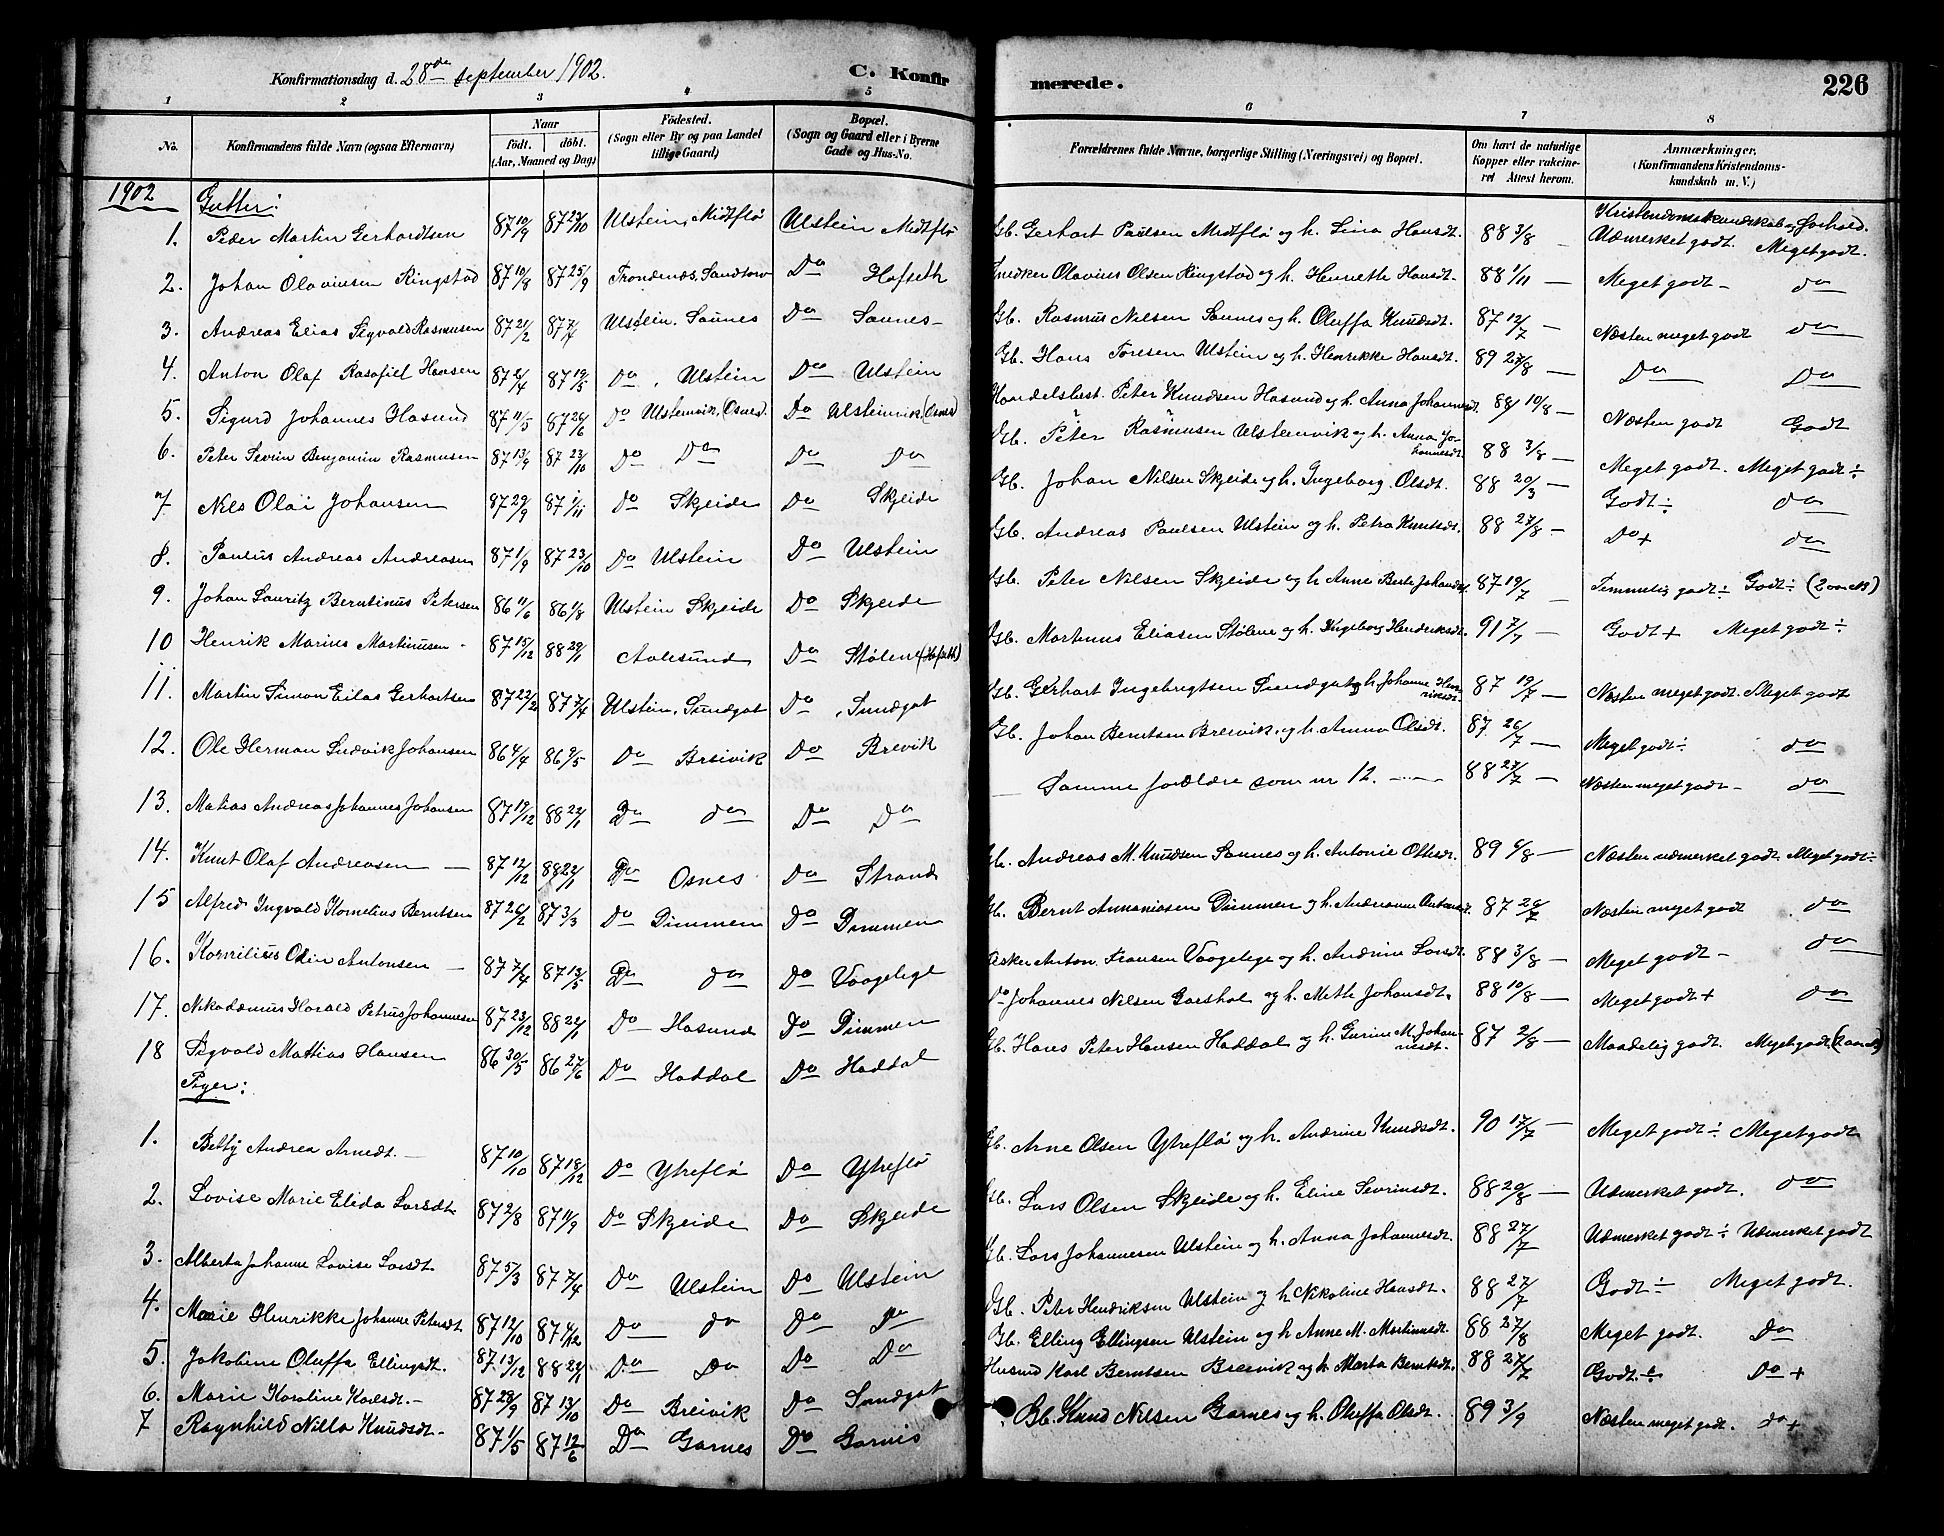 Konfirmationsdag d. 28de september 1902. C. Konfirmerede. 226
1 2 3 4 5 6 7 8
No. Konfirmandens fulde Navn (ogsaa Efternavn) Naar født. døbt. (Aar, Maaned og Dag) Födested. (Sogn eller By og paa Landet tillige Gaard) Bopæl. (Sogn og Gaard eller i Byerne Gade og Hus-No. Forældrenes fulde Navne, borgerlige Stilling (Næringsvei) og Bopæl. Om havt de naturlige Kopper eller vakcineret Attest herom. Anmærkninger. (Konfirmandens Kristendomskundskab m. V.)
1902 Gutter: Kristendomskundskab og Forhold.
1. Peder Martin Gerhardtsen 87 10/9 87 23/10 Ulstein, Midtflø Ulstein Midtflø Gb. Gerhart Paulsen Midtflø og h. Lina Hansdt. 88 3/8 — Udmerket godt. Meget godt.
2. Johan Olaviusen Ringstad 87 10/8 87 25/9 Trondenæs, Sandtorv Do Hofseth Snedker Olavius Olsen Ringstad og h. Henrette Hansdt. 88 1/11 — Meget godt - do
3. Andreas Elias Sigvald Rasmusen 87 21/2 87 7/4 Ulstein, Saunes Do Saunes - Gb. Rasmus Nilsen Saunes og h. Oluffa Knudsdt. 87 12/7 — Næsten meget godt do
4. Anton Olaf Rasofiel Hansen 87 2/4 87 19/5 Do, Ulstein Do Ulstein Gb. Hans Toresen Ulstein og h. Henrikke Hansdt. 89 27/8 — Do Do
5. Sigurd Johannes Hasund 87 11/5 87 26/6 Do Ulsteinvik, (Osnes). Do Ulsteinvik (Osnes) Handelsbest. Peter Knudsen Hasund og h. Anna Johannesdt. 88 10/8 — Næsten godt Godt
6. Peter Sevrin Benjamin Rasmusen 87 13/9 87 23/10 Do Do Do Do Gb. Peter Rasmusen Ulsteinvik og h. Anna Johannesdt. 88 3/8 — Meget godt. Meget godt ÷
7. Nils Olai Johansen 87 29/9 87 1/11 Do Skjeide Do Skjeide Gb. Johan Nilsen Skjeide og h. Ingeborg Olsdt. 88 20/3 — Godt ÷ do
8. Paulus Andreas Andreasen 87 1/9 87 23/10 Do Ulstein Do Ulstein Gb. Andreas Paulsen Ulstein og h. Petra Knutsdt. 88 27/8 — Do + do
9. Johan Lauritz Berntinus Petersen 86 11/6 86 1/8 Ulstein Skjeide Do Skjeide Gb. Peter Nilsen Skjeide og h. Anne Berte Johansdt. 87 19/7 — Temmelig godt ÷ Godt ÷
10 Henrik Marius Martinusen - 87 15/12 88 29/1 Aalesund Do Stølene (Hofseth) Gb. Martinus Eliasen Stølene og h. Ingeborg Hendriksdt. 91 7/7 — Godt + Meget godt ÷
11. Martin Simon Eilas Gerhartsen 87 22/2 87 7/4 Ulstein, Sundgot Do, Sundgot Gb. Gerhart Ingebrigtsen Sundgot og h. Johanne Henriksdt. 87 19/7 — Næsten meget godt. Meget godt
12. Ole Herman Ludvik Johansen 86 4/4 86 9/5 Do Breivik Do Brevik Gb. Johan Berntsen Breivik og h. Anna Olsdt. 87 26/7 — Meget godt ÷ do
13. Matias Andreas Johannes Johansen 87 19/12 88 22/1 Do do Do Do — Samme forældre som nr 12. 88 23/7 — Næsten meget godt - do
14. Knut Olaf Andreasen — 87 12/12 88 22/1 Do Osnes Do Strand Gb. Andreas M. Knudsen Saunes og h. Antonie Ottesdt. 89 6/8 — Næsten udmerket godt. Meget godt ÷
15 Alfred Ingvald Kornelius Berntsen 87 26/2 87 3/3 Do Dimmen Do Dimmen Gb. Bernt Annaniasen Dimmen og h. Andrianne Antonsdt. 87 26/7 — Næsten meget godt do
16. Kornelius Odin Antonsen — 87 7/4 87 19/5 Do do Do Vaagelege Fisker Anton Fransen Vaagelege og h. Andrine Larsdt. 88 3/8 — Meget godt - do
17. Nikodemus Harald Petrus Johannesen 87 23/12 88 22/1 Do Hasund Do Dimmen Do Johannes Nilsen Garshol og h. Methe Johansdt. 88 10/8 — Meget godt + do
18 Sigvald Mattias Hansen 86 30/5 86 27/6 Do Haddal Do Haddal Gb. Hans Peter Hansen Haddal og h. Gurine M. Johannesdt. 87 2/8 — Maadelig godt. Meget godt
Piger:
1. Betty Andrea Arnedt. — 87 10/10 87 18/12 Do Ytreflø Do Ytreflø Gb. Arne Olsen Ytreflø og h. Andrine Knudsdt. 90 17/7 — Meget godt ÷ Meget godt
2. Lovise Marie Elida Larsdt 87 2/8 87 11/9 Do Skjeide Do Skjeide Gb. Lars Olsen Skjeide og h. Eline Sevrinsdt. 88 20/8 — Udmerket godt. do
3. Alberta Johanne Lovise Larsdt 87 5/3 87 7/4 Do Ulstein Do Ulstein Gb. Lars Johannesen Ulstein og h. Anna Johannesdt. 88 27/7 Udmerket godt ÷ Udmerket godt
4. Marie Henrikke Johanne Petersdt 87 12/10 87 4/12 Do do Do do Gb. Peter Hendriksen Ulstein og h. Nikoline Hansdt. 88 27/7 Godt ÷ Meget godt.
5. Jakobine Oluffa Ellingsdt. 87 13/12 88 22/1 Do Do Do Do Gb. Elling Ellingsen Ulstein og h. Anne M. Martinusdt. 88 27/8 Meget godt. Do
6. Marie Karoline Karlsdt. - 87 28/9 87 13/10 Do Breivik Do Sundgot Husmd Karl Berntsen Breivik og h. Marta Berntsdt. 88 27/7 Godt ÷ Do +
7 Ragnhild Nilla Knudsdt - 87 1/5 87 12/6 Do Garnes Do Garnes Gb. Knud Nilsen Garnes og h. Oluffa Olsdt. 89 3/9 Næsten meget godt. do +